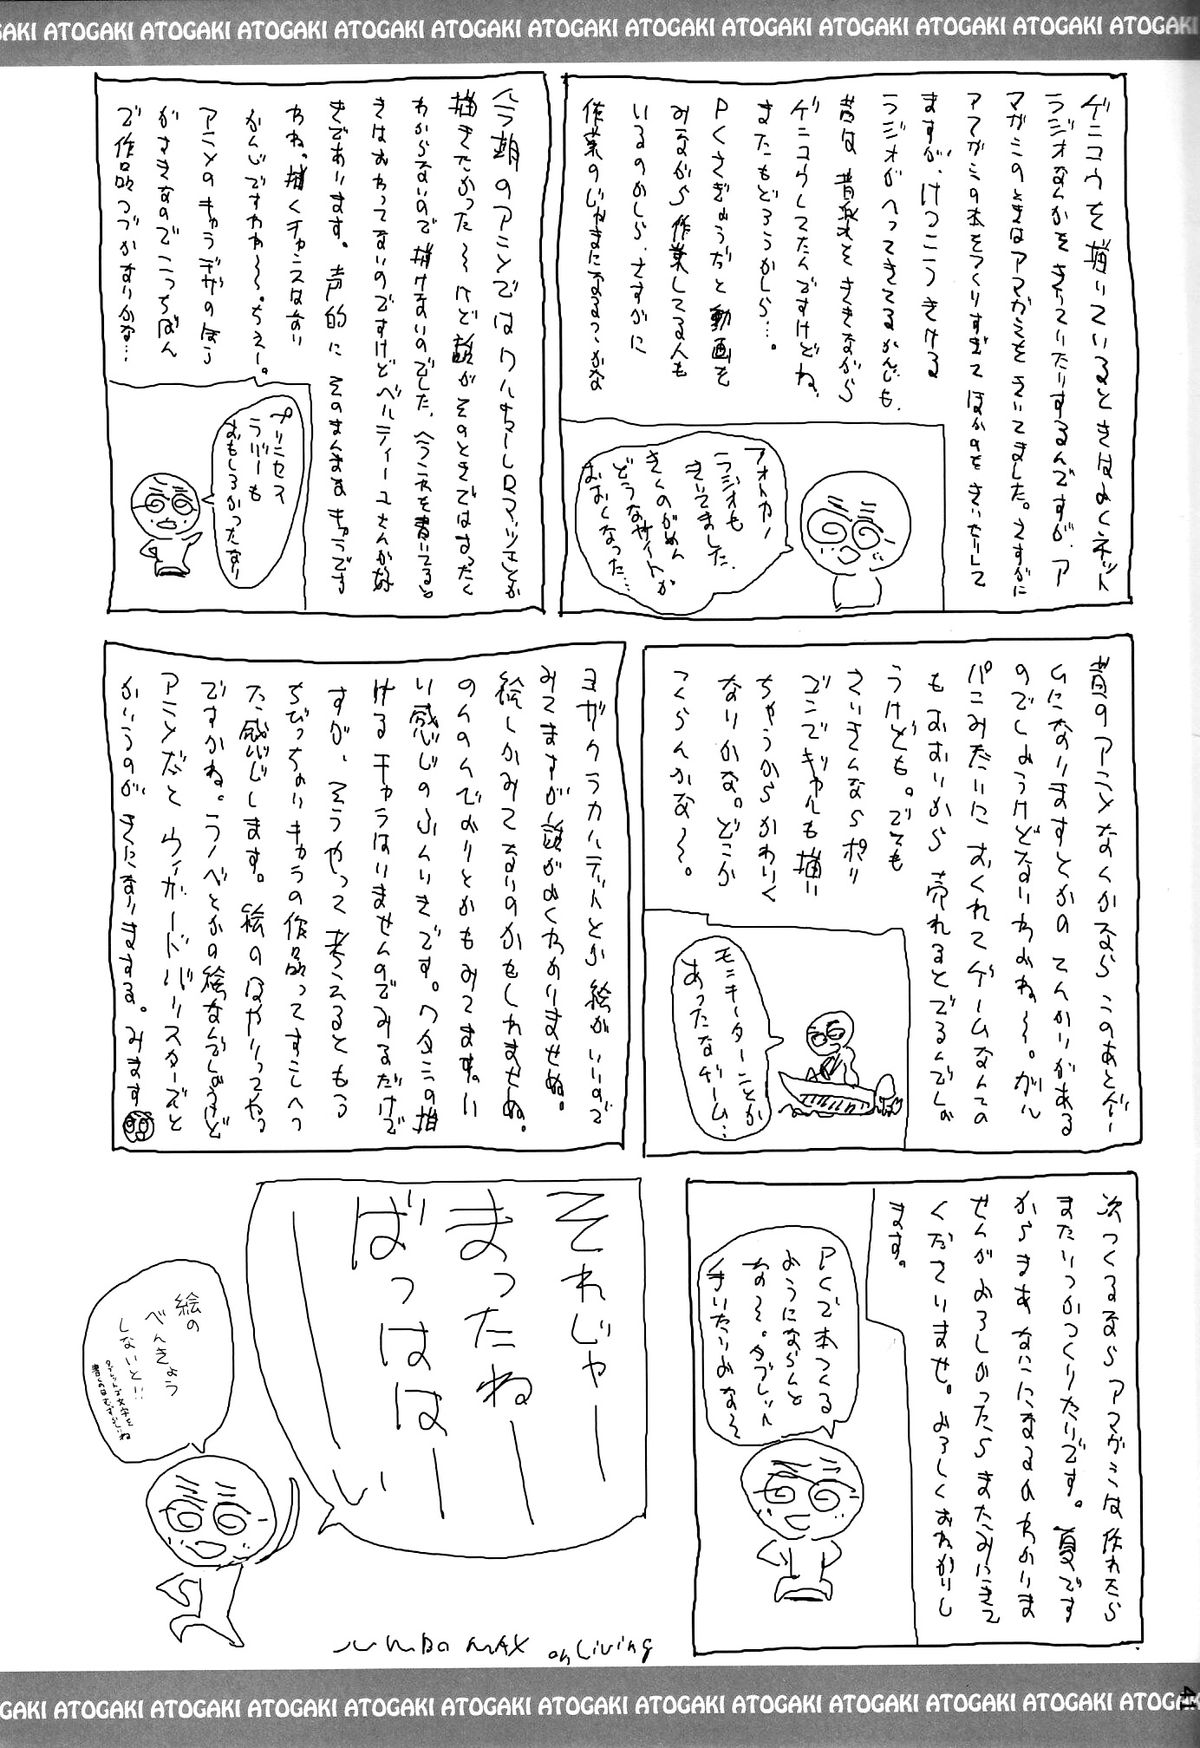 ATOGAKI ATOGAKI ATOGAKI ATOGAKI ATOGAKI ATOGAKI ATOGAKI ATOGAKI ATOGAKI ATOGAKI ATOGAKI
ゲンコウを描いているときはよくネット
ラジオなんかをきいていたりするんですが、ア
マガミのときはアマガミをきいてました。さすがに
アマガミの本をつくりすぎて ほかのをきいたりして
ますが、けっこうきける
ラジオがへってきてるかんじも、
昔は 音楽をききながら
ゲンコウしてたんですけどね、
またもどろうかしら…。
PCさぎょうだと 動画を
みながら作業してる人も
いるのかしら、さすがに
作業のじゃまになるっつかな
アオトカノ
ラジオも
きいてました、
きくのがめん
どうなサイトが
おおくなった…
今期のアニメではワルキューレロマンツェとか
描きたかった〜けど 話がそのときではまったく
わからないので 描けないのでした、ペラコを書いてると
きはおわってないのですけど ベルティーユさんが好
きであります。声的に そのまんまな キャラです
わね。描くチャンスはない
かんじですわわ〜。ちぇー。
アニメのキャラデザのほう
がすきなのでこっちばん
で作品つづかないかな…
プリンセス
ラバーも
おもしろかったなり
昔のアニメなんかなら このあとゲー
ムになりますとかの てんかいがある
のでしょうけどないわよね〜。ガル
パンみたいに おくれてゲームなんての
もおおいから 売れるとでるんでしょ
うけども。でも
さいきんならポリ
ゴンでギャルも描い
ちゃうからかわいく
ないかな。どこか
つくらんかな〜。
モンキーターンとか
あったなゲーム…
ヨザクラカルテットとか 絵がいいので
みてますが 話がよくわかりませぬ。
絵しかみてないのかもしれませぬ。
のんのんびよりとかもみてます。い
い感じのふんいきです。ワタシの描
けるキャラはいませんのでみるだけで
すが、そうやって考えるともる
ちびっちゃいキャラの作品ってすこしへっ
た感じします。絵のはやりってやつ
ですかね。ラノベとかの絵なんでしょうけど
アニメだと ウィザードバリスターズんと
かいうのが きになりまする。みます
次つくるなら アマガミは 作れたら
またいつかつくりたいです。夏です
からまあ なにになるのかわかりま
せんがよろしかったら またみにきて
くださいませ。よろしくおねがいし
ます。
PCで本つくる
ようにならんと
な〜。タブレット
きいたりよな〜
それじゃー
まったねー
ばっはは
はーい
絵の
べんきょう
しないと!!
タブレットで文字を
書くのはむずかしいね
JUMBO MAX on Living
ATOGAKI ATOGAKI ATOGAKI ATOGAKI ATOGAKI ATOGAKI ATOGAKI ATOGAKI ATOGAKI ATOGAKI ATOGAKI